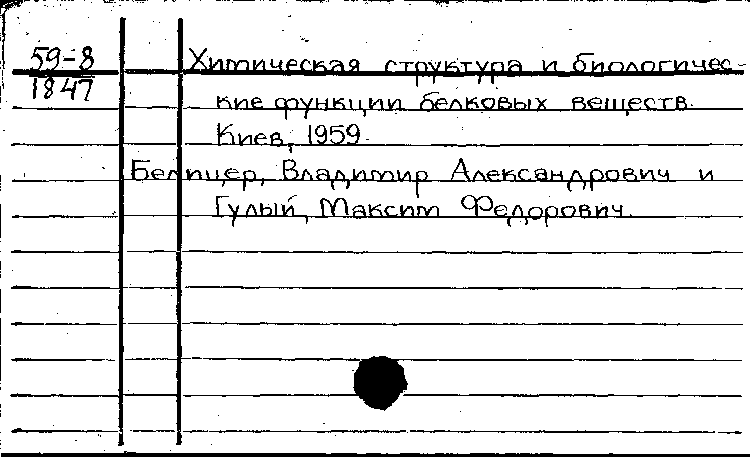 59-8 Химическая структура и биологичес-
1847 кие функции белковых веществ.
Киев, 1959.
Белицер, Владимир Александрович и
Гулый, Максим Федорович.